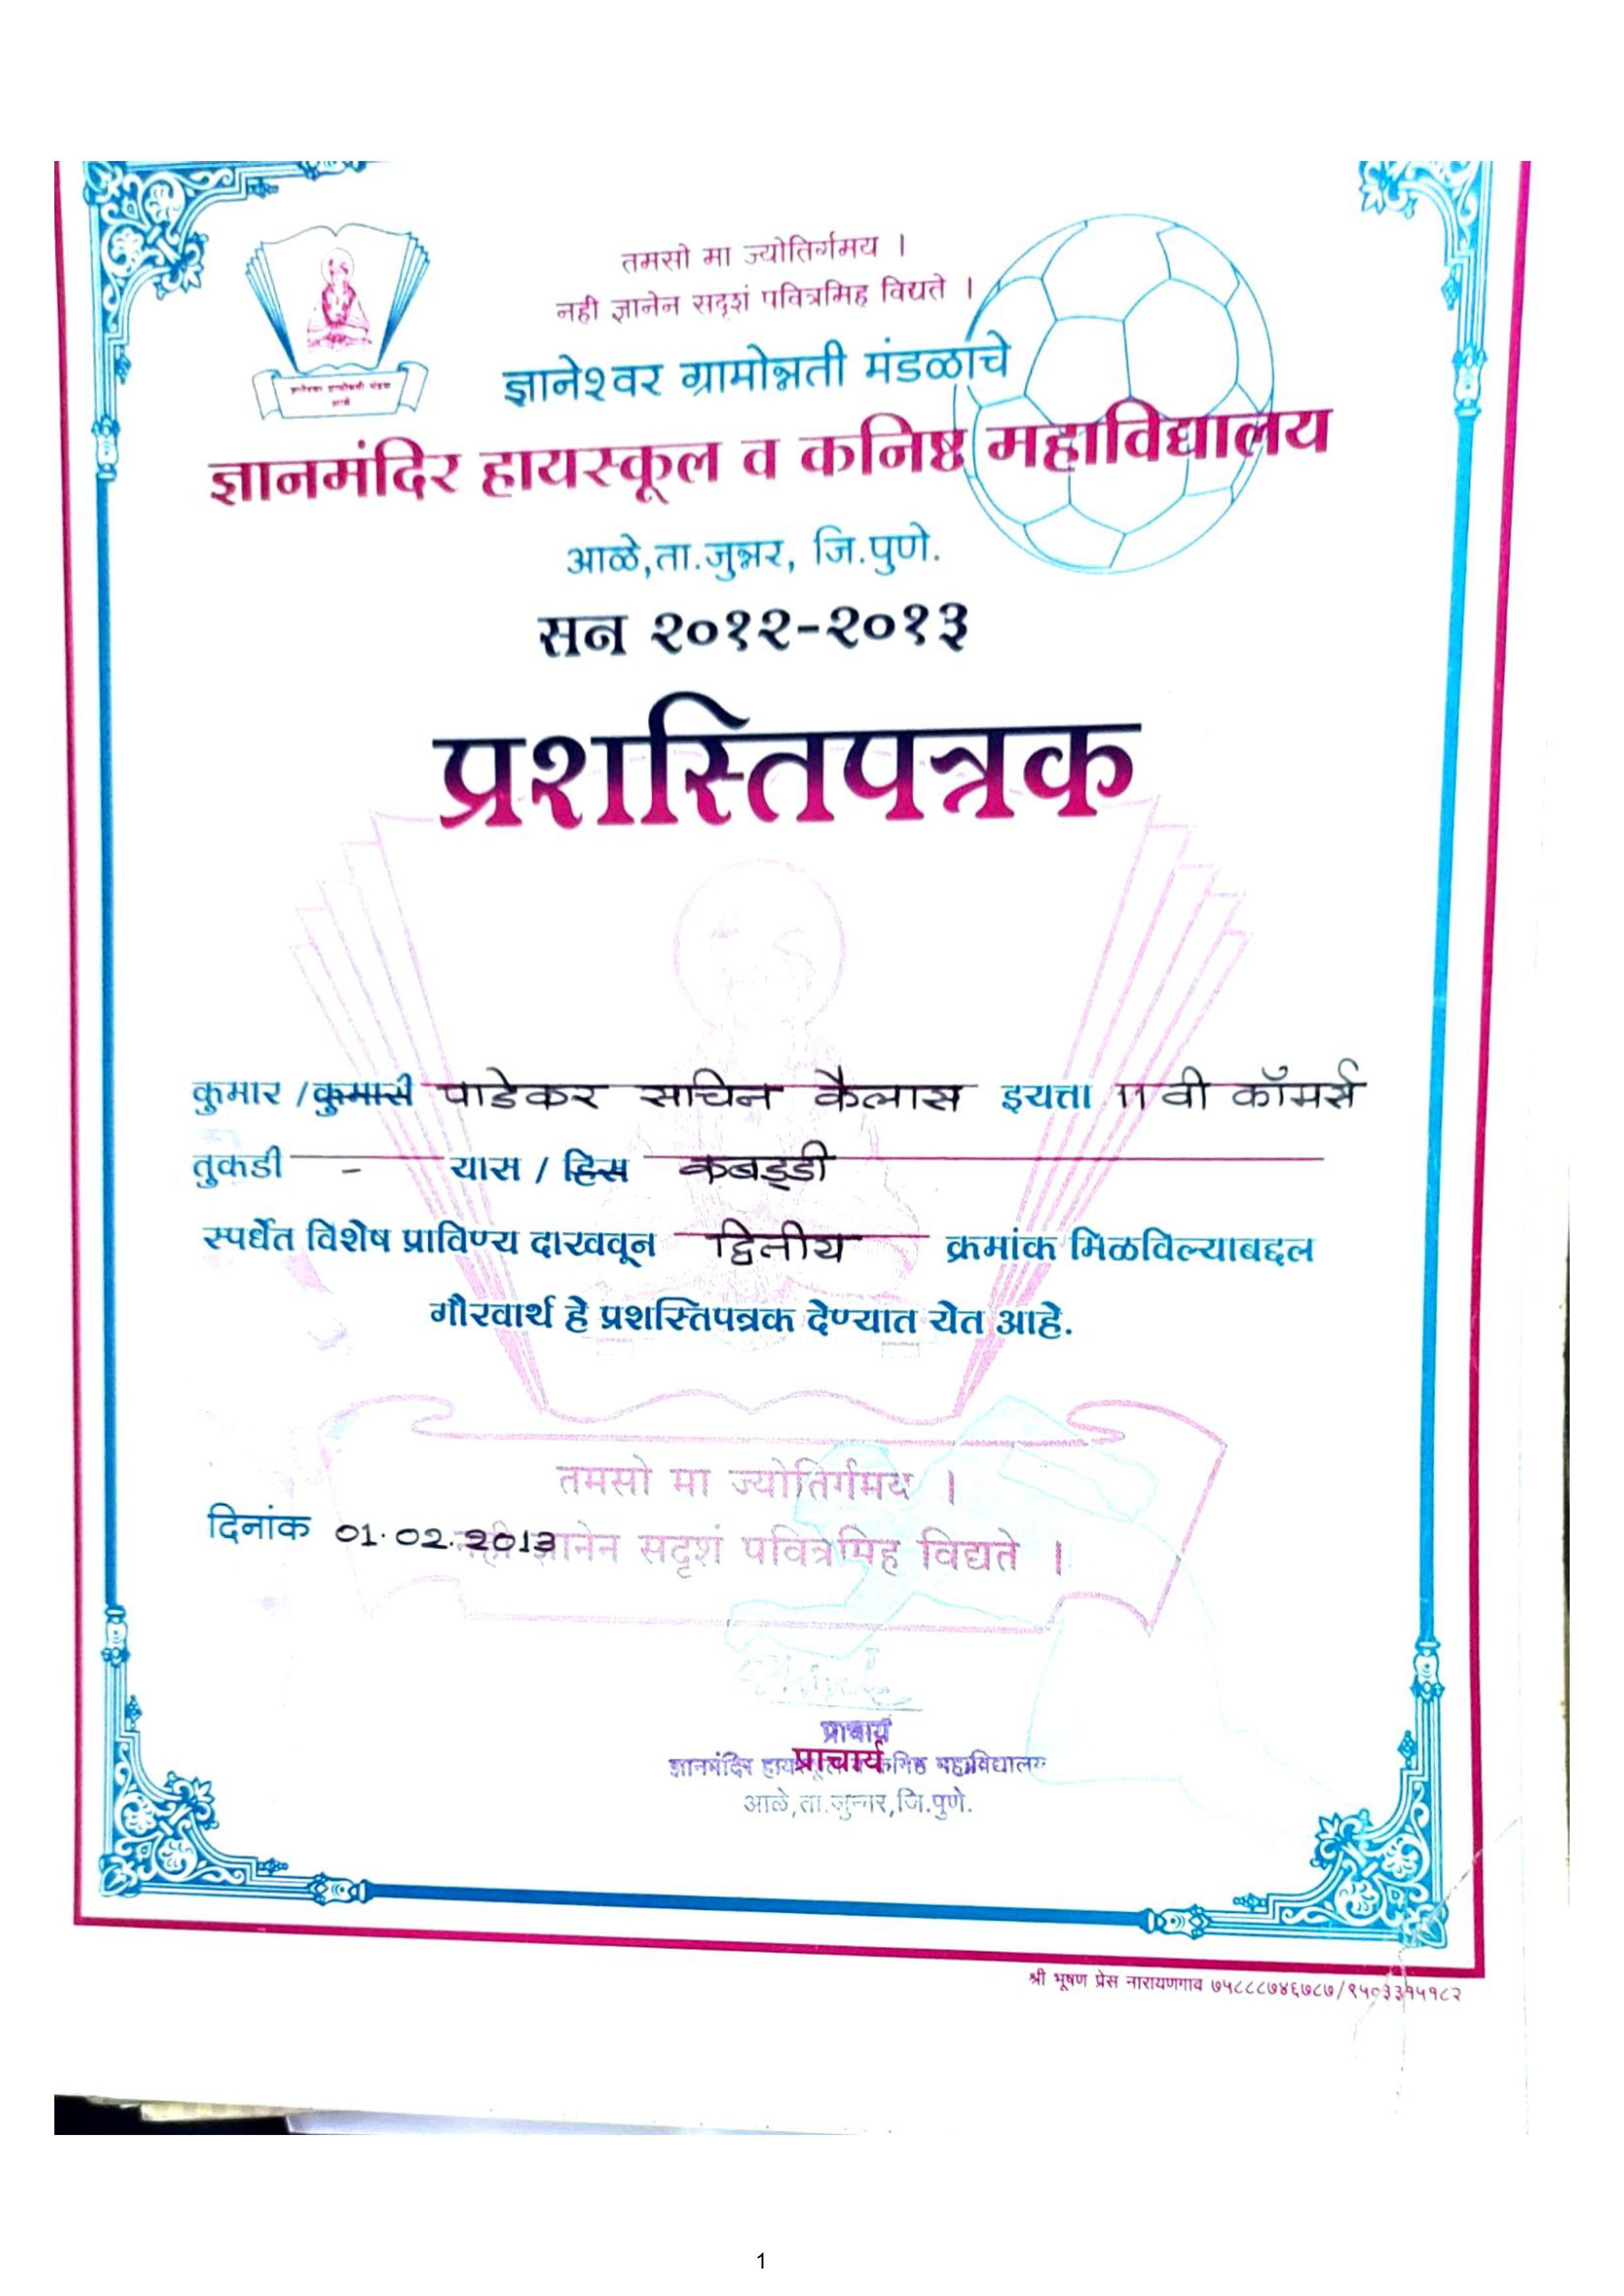 तमसो मा ज्योतिर्गमय ।
नही ज्ञानेन सदृशं पवित्रमिह विद्यते ।
ज्ञानेश्वर ग्रामोन्नती मंडळाचे
ज्ञानमंदिर हायस्कूल व कनिष्ठ महाविद्यालय
आळे,ता.जुन्नर, जि.पुणे.
सन २०१२-२०१३
प्रशस्तिपत्रक
कुमार /कुमारी पाडेकर सचिन कैलास इयत्ता 11 वी कॉमर्स
तुकडी - यास / हिस कबड्डी
स्पर्धेत विशेष प्राविण्य दाखवून द्वितीय क्रमांक मिळविल्याबद्दल
गौरवार्थ हे प्रशस्तिपत्रक देण्यात येत आहे.
तमसो मा ज्योतिर्गमय ।
दिनांक 01.02.2013
ज्ञानेन सदृशं पवित्रमिह विद्यते ।
प्राचार्य
प्राचार्य
ज्ञानमंदिर कनिष्ठ महाविद्यालय
आळे,ता.जुन्नर,जि.पुणे.
श्री भूषण प्रेस नारायणगाव ७५८८८७४६७८७/९५०३३१५१८२
1